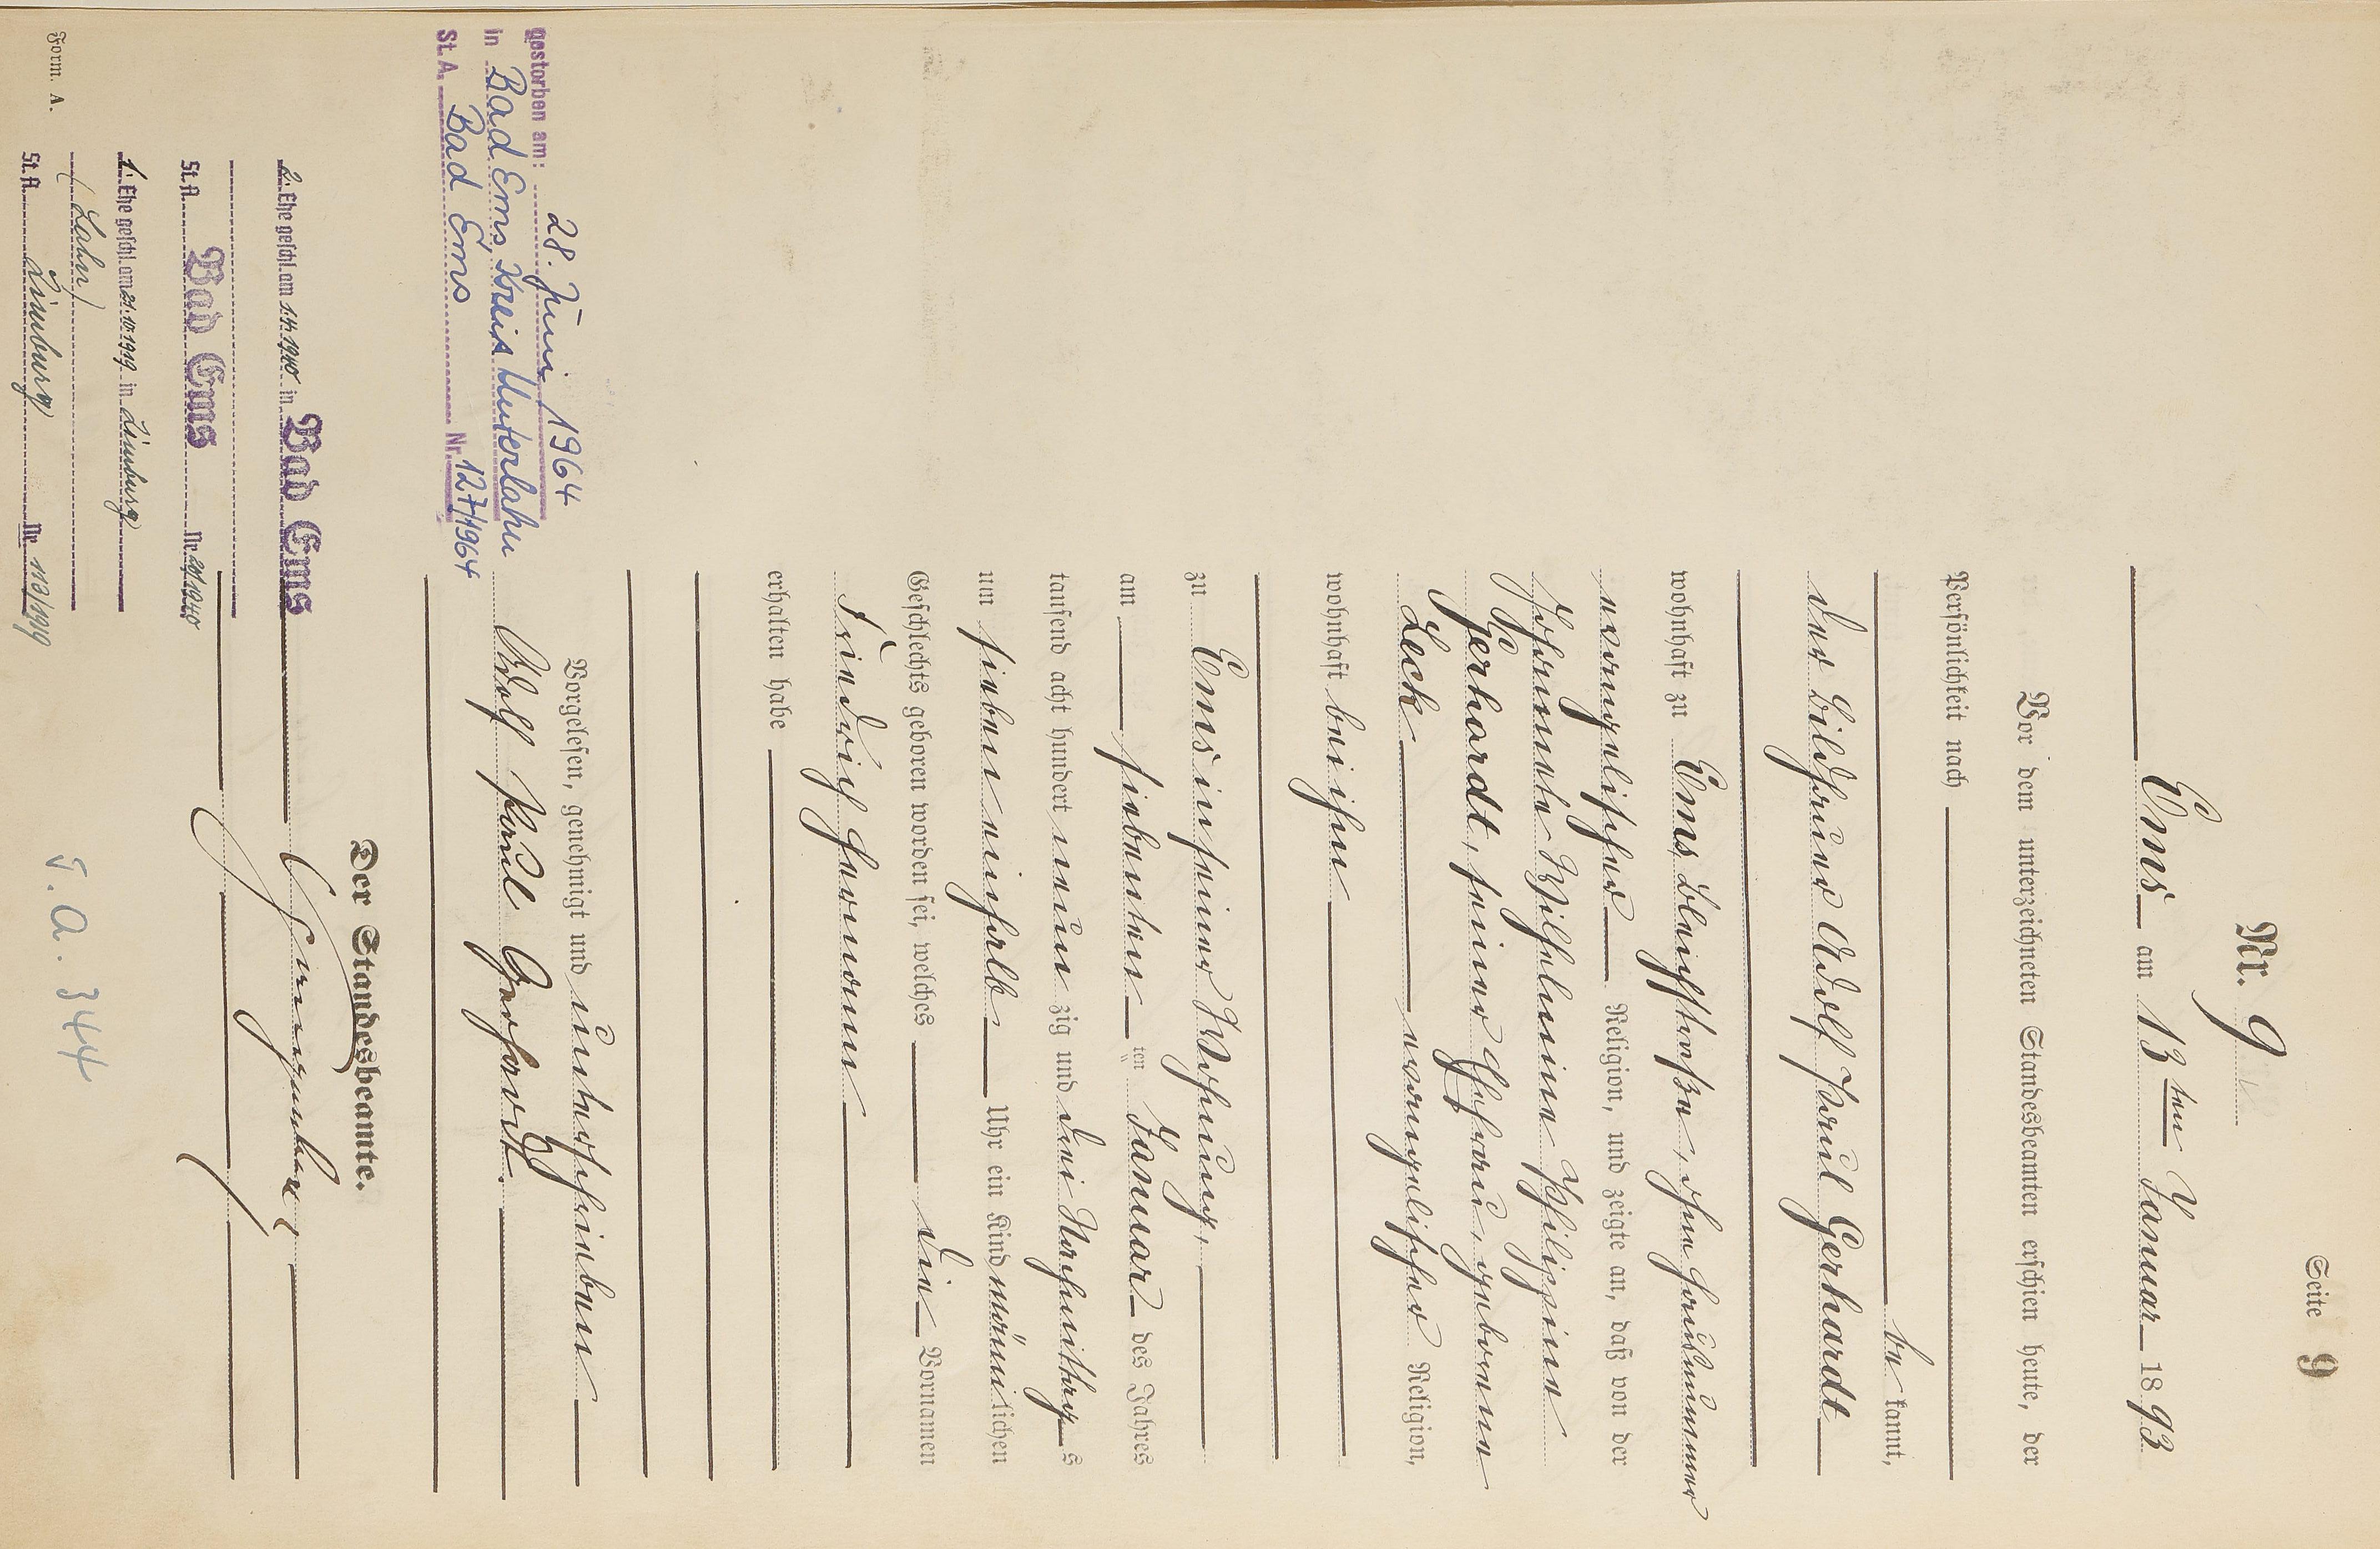 Seite 9
Nr. 9
Ems am 13ten Januar 1893
Vor dem unterzeichneten Standesbeamten erschien heute, der
Persönlichkeit nach
bekannt,
der Bildhauer Adolf Paul Gerhardt
wohnhaft zu Ems, Bleichstraße, ohne Hausnummer
evangelischer Religion, und zeigte an, daß von der
Johannete Wilhelmine Philippine
Gerhardt, seiner Ehefrau, geborene
Leck evangelischer Religion,
wohnhaft bei ihm
zu Ems in seiner Wohnung,
am siebenten ten Januar des Jahres
tausend acht hundert neunzig und drei Nachmittags
um sieben einhalb Uhr ein Kind männlichen
Geschlechts geboren worden sei, welches die Vornamen
Friedrich Hermann
erhalten habe
Vorgelesen, genehmigt und unterschrieben
Adolf Paul Gerhardt.
Der Standesbeamte.
gestorben am: 28. Juni 1964
in Bad Ems, Kreis Unterlahn
St. A. Bad Ems Nr. 127/1964
2. Ehe geschl. am 1.4.1940 in Bad Ems
St. A. Bad Ems Nr. 29/1940
1. Ehe geschl. am 21.10.1919 in Limburg
(Lahn)
St. A. Limburg Nr. 113/1919
Form. A.
F. A. 344